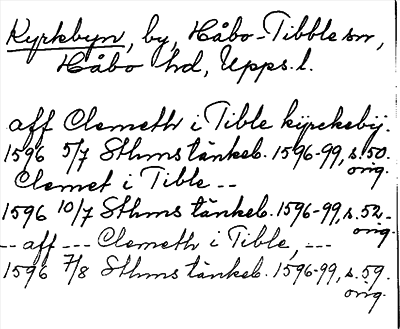 Kyrkbyn, by, Håbo-Tibble sn,
Håbo hd, Upps.l.
aff Clemeth i Tible kyrkeby.
1596 5/7 Sthms tänkeb. 1596-99, s.50.
orig.
Clemet i Tible --
1596 10/7 Sthms tänkeb. 1596-99, s.52.
orig.
-- aff --- Clemeth i Tible, ---
1596 7/8 Sthms tänkeb. 1596-99, s.59.
orig.